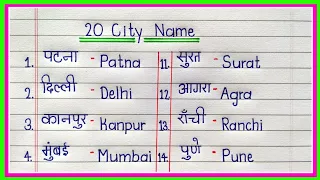 20 City Name
1. पटना - Patna
2. दिल्ली - Delhi
3. कानपुर - Kanpur
4. मुंबई - Mumbai
11. सुरत - Surat
12. आगरा - Agra
13. राँची - Ranchi
14. पुणे - Pune